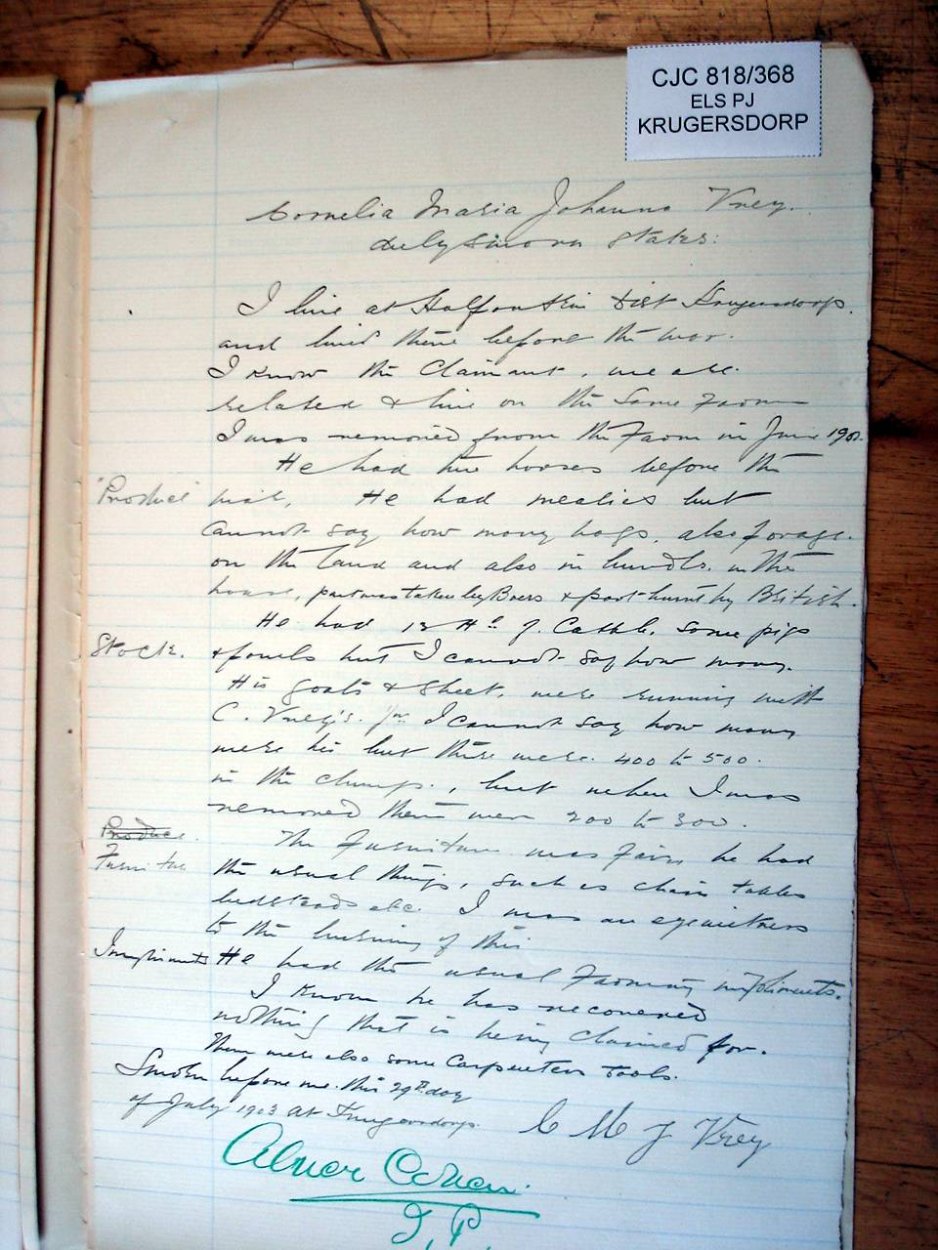 CJC 818/368
ELS PJ
KRUGERSDORP
Cornelia Maria Johanna Vrey.
duly sworn states:
I live at Halfontein Dist Krugersdorp.
and lived there before the war.
I know the Claimant, we are
related & live on the same Farm
I was removed from the Farm in June 1901.
He had two horses before the
"Produce" war. He had mealies but
cannot say how many bags, also forage.
on the land and also in bundles in the
house, part was taken by Boers & part burnt by British.
He had 13 Hd of Cattle, some pigs
Stock. & fowls but I cannot say how many.
His goats & sheep were running with
C. Vrey's. I cannot say how many
were his but there were 400 to 500.
in the, but when I was
removed there were 200 to 300.
Produce.
The Furniture was fair, he had
Furniture the usual things, such as chairs tables
bedsteads etc. I was an eyewitness
to the burning of this
Implements He had the usual Farming implements.
I know he has recovered
nothing that is being claimed for.
There were also some Carpenters Tools.
Sworn before me this 29th day
of July 1903 at Krugersdorp.
C M J Vrey
Abner Cohen
J. P.